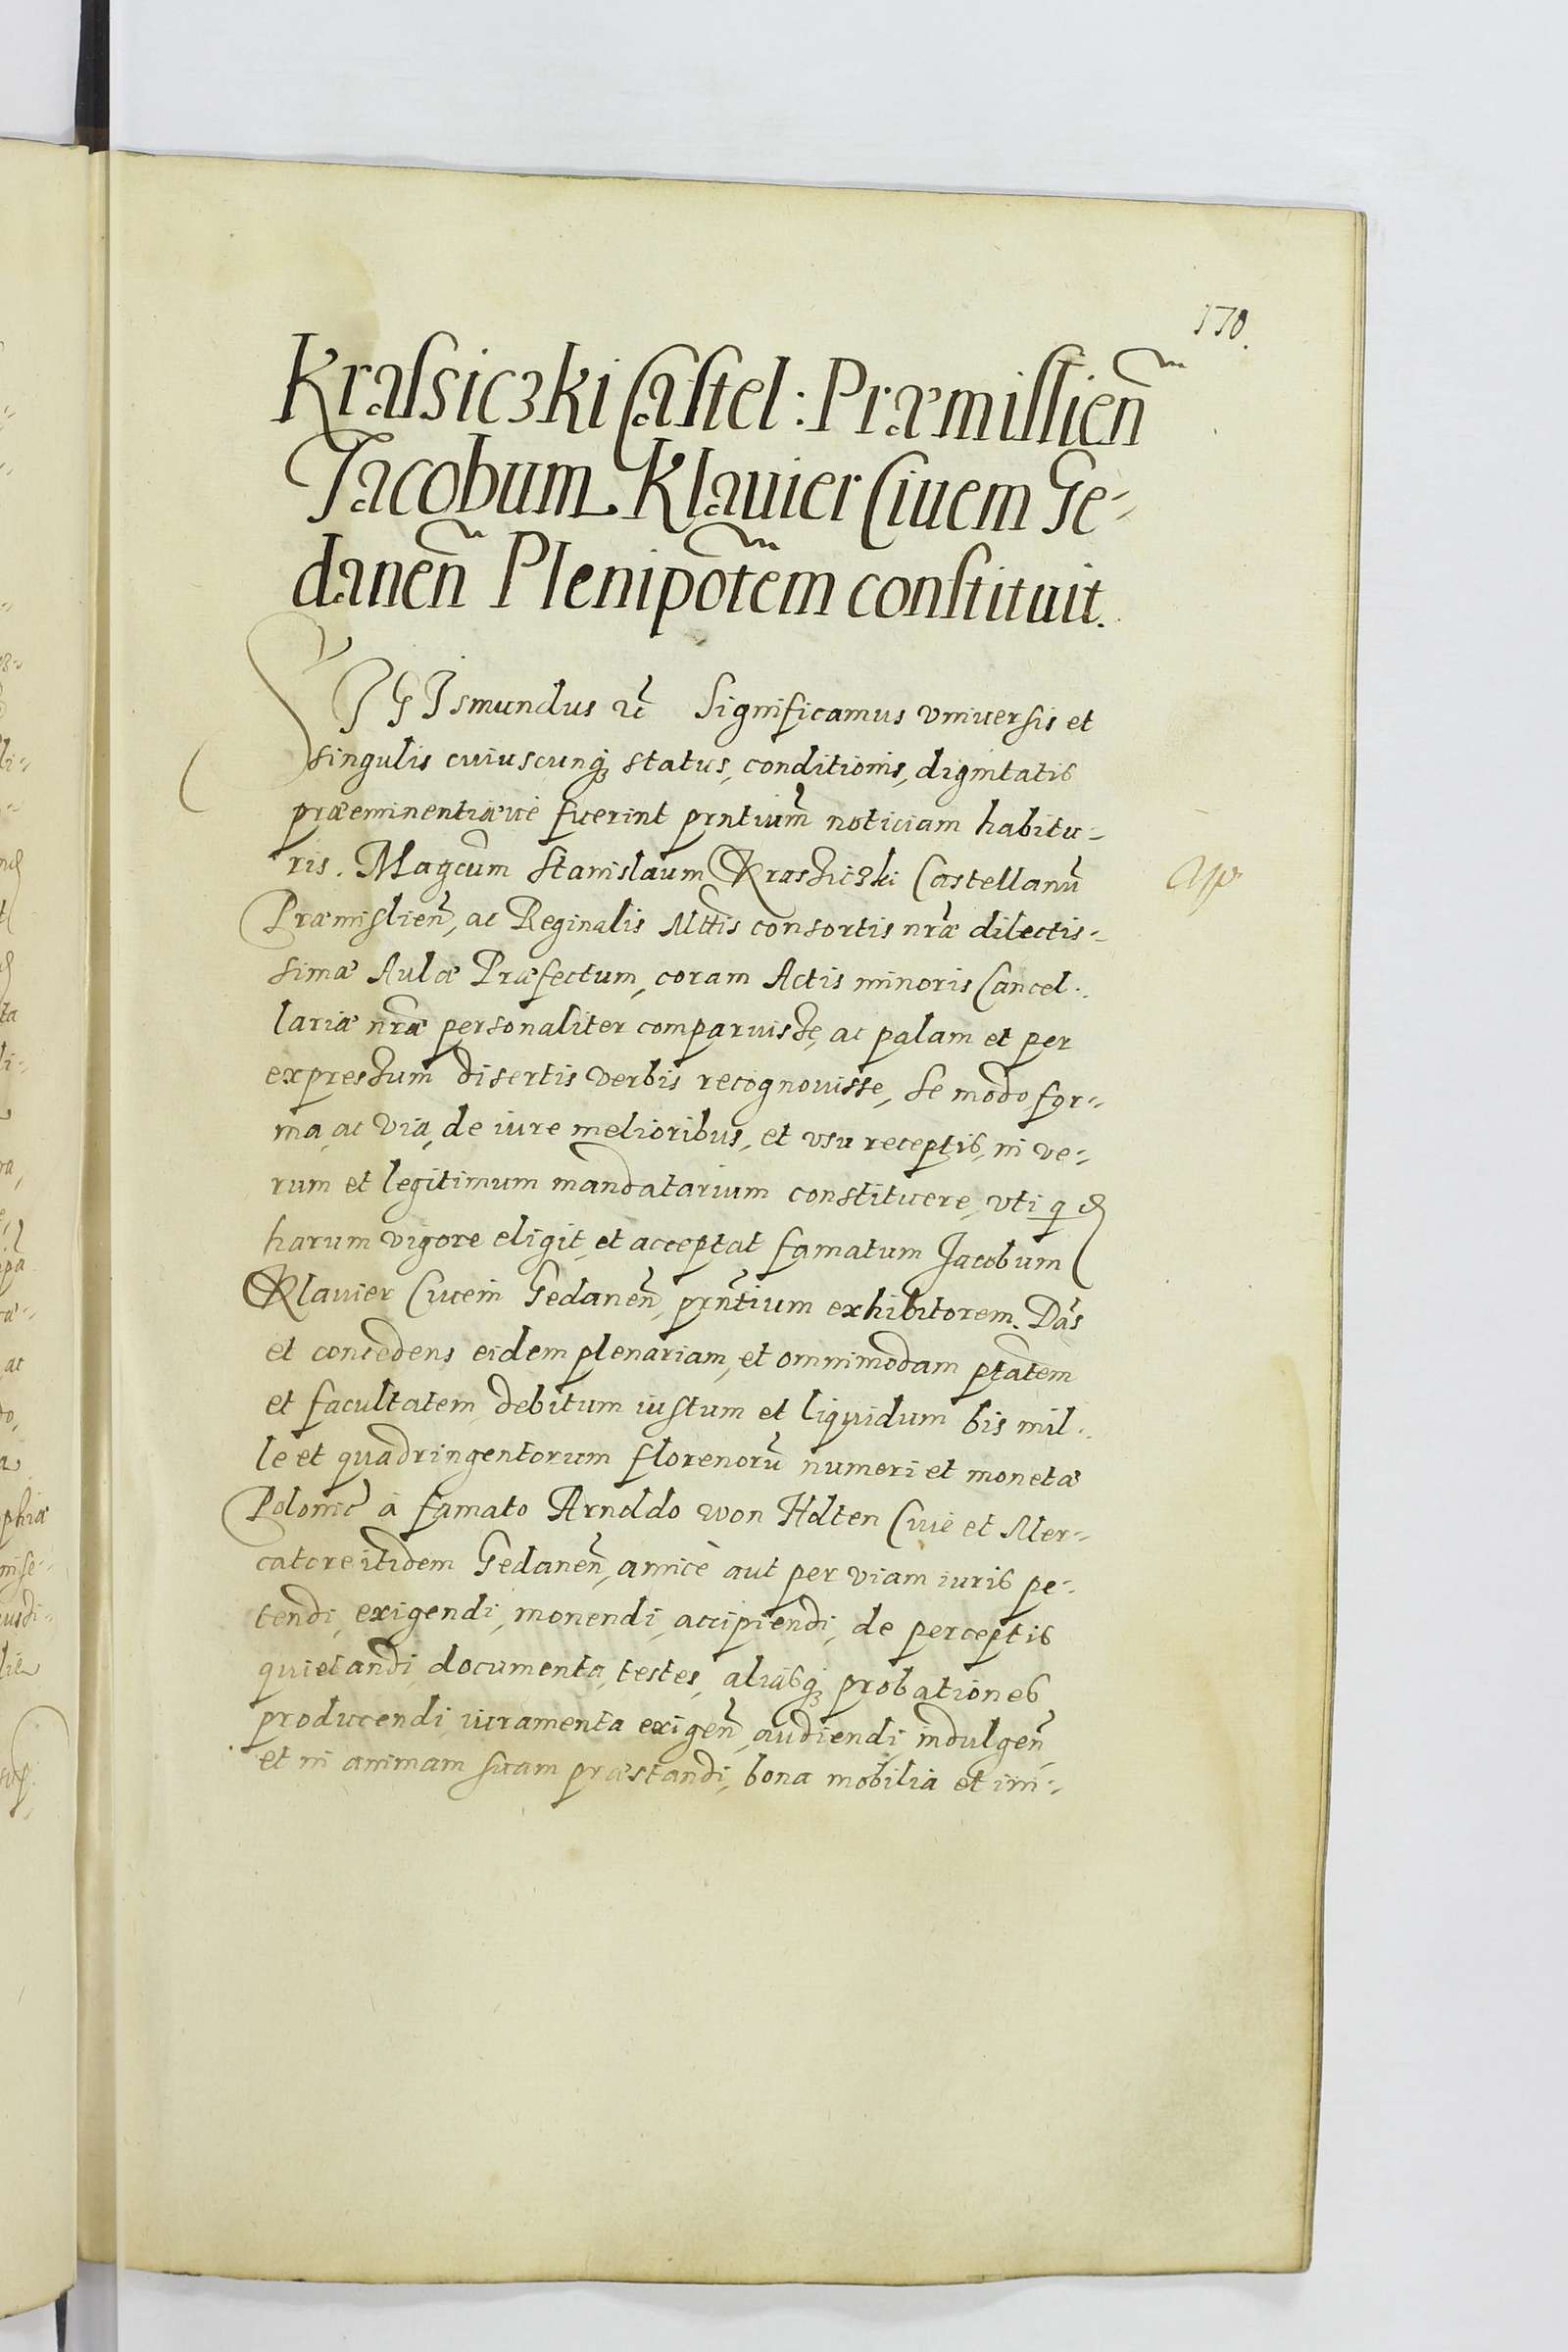 170.
Kraſsiczki Caſtel: Præmiſlien̄
Jacobum Klauier Ciuem Ge-
danen̄ Plenipōtem conſtituit.
SIGIsmundus ꝛc̄ Significamus vniuersis et
singulis cuiuscunq́ status, conditionis, dignitatis
præeminentiæue fuerint prntium̄ noticiam habitu-
ris. Magcum Stanislaum Krassiczki Castellanū
Præmislien̄, ac Reginalis Mttis consortis nr̄æ dilectis-
simæ Aulæ Præfectum, coram Actis minoris Cancel-
lariæ nr̄æ personaliter comparuisse, ac palam et per
expressum disertis verbis recognouisse, se modo for-
ma, ac via, de iure melioribus, et vsu receptis, in ve-
rum et legitimum mandatarium constituere, vti q̲
harum vigore eligit, et acceptat famatum Jacobum
Klauier Ciuem Gedanen̄, prn̄tium exhibitorem. Dās
et concedens eidem plenariam, et omnimodam ptātem
et facultatem debitum iustum et liquidum bis mil-
le et quadringentorum florenorū numeri et monetæ
Polonic̄ à famato Arnoldo won Holten Ciue et Mer-
catore itidem Gedanen̄, amicè aut per viam iuris pe-
tendi, exigendi, monendi, accipiendi, de perceptis
quietandi, documenta, testes, aliasq́ probationes
producendi, iuramenta exigen̄, audiendi, indulgen̄,
et in animam suam præstandi, bona mobilia et im-